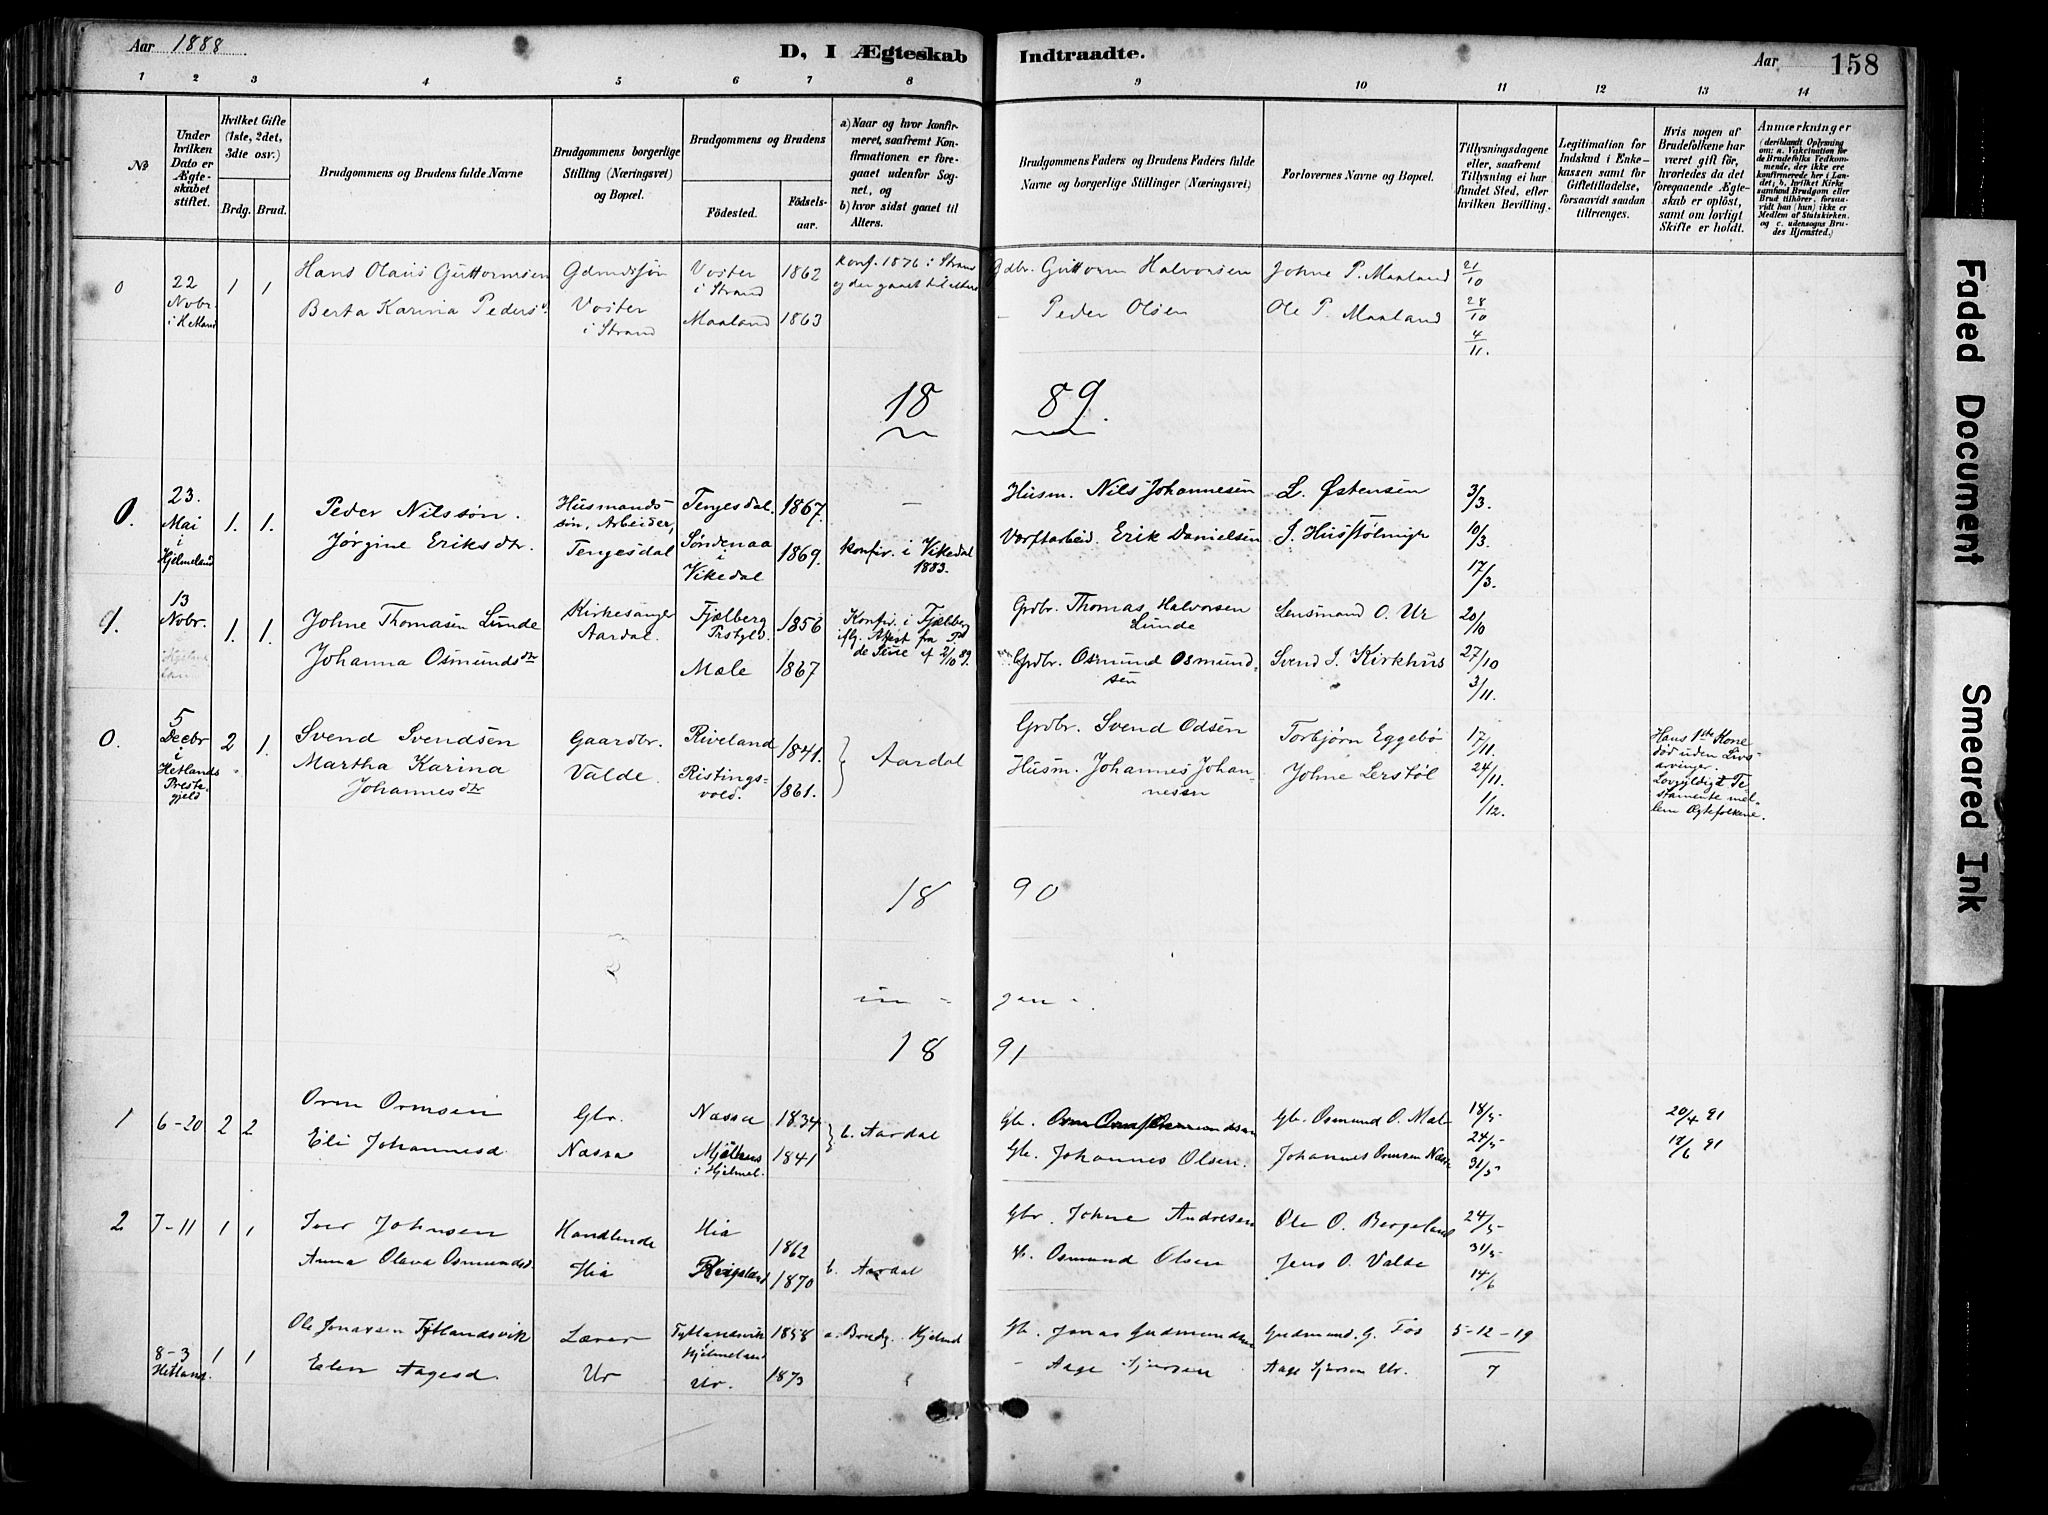 Aar 1888
D, I Ægteskab Indtraadte.
Aar
158
1 2 3 4 5 6 7 8 9 10 11 12 13 14
No
Under hvilken Dato er Ægteskabet stiftet.
Hvilket Gifte (1ste, 2det, 3die osv.)
Brdg. Brud.
Brudgommens og Brudens fulde Navne
Brudgommens borgerlige Stilling (Næringsvei) og Bopæl.
Brudgommens og Brudens
Födested.
Födsels-aar.
a) Naar og hvor konfirmeret, saafremt Konfirmationen er foregaaet udenfor Sognet, og
b) hvor sidst gaaet til Alters.
Brudgommens Faders og Brudens Faders fulde Navne og borgerlige Stillinger (Næringsvei)
Forlovernes Navne og Bopæl.
Tillysningsdagene eller, saafremt Tillysning ei har fundet Sted, efter hvilken Bevilling.
Legitimation for Indskud i Enkekassen samt for Giftetilladelse, forsaavidt saadan tiltrænges.
Hvis nogen af Brudefolkene har været gift för, hvorledes da det foregaaende Ægteskab er oplöst, samt om lovligt Skifte er holdt.
Anmærkninger (deriblandt Oplysning om: a. Vakcination for de Brudefolks Vedkommende, der ikke ere konfirmerede her i Landet; b, hvilket Kirkesamfund Brudgom eller Brud tilhörer, forsaavidt han (hun) ikke er Medlem af Statskirken, og c. udensogns Brudes Hjemsted.)
0 22 Nobr. i Hetland 1 1 Hans Olaus Guttormsen Gdmdssøn Voster i Strand 1862 konf. 1876 i Strand og der gaaet til alters Gdbr. Guttorm Halvorsen Johne P. Maaland 21/10
Berta Karina Pedersd. Voster i Strand Maaland 1863 – Peder Olsen Ole P. Maaland 28/10
4/11.
18 89.
0. 23. Mai i Hjelmeland 1. 1. Peder Nilssøn. Husmandssøn, Arbeider, Tengesdal Tengesdal. 1867. – Husm. Nils Johannesen L. Østensen 3/3.
Jørgine Eriksdtr. Søndenaa i Vikedal 1869. konfir. i Vikedal 1883. Værftarbeid. Erik Danielsen J. Husstølmyr 10/3.
17/3.
9. 13 Nobr. 1. 1. Johne Thomasen Lunde Kirkesanger Aardal. Fjælberg Prstgld. 1856 Konfir. i Fjælberg iflg. Attest fra P. de Seue af 2/10 89. Grdbr. Thomas Halvorsen Lunde Lensmand O. Ur 20/10
Johanna Osmundsdtr Mæle 1867 Grdbr. Osmund Osmundsen Svend J. Kirkhus 27/10
3/11.
0. 5 Decbr i Hetlands Prestegjeld 2 1. Svend Svendsen Gaardbr. Valde. Riveland 1841. Aardal Grdbr. Svend Odsen Torbjørn Eggebø 17/11.
Martha Karina Johannesdtr Ristingsvold. 1861. Husm. Johannes Johannessen Johne Lerstøl 24/11.
1/12.
Hans 1ste Kone død uden Livsarvinger. Lovgyldigt Testamente mellem Ægtefolkene.
18 90
18 91
1 6-20 2 2 Orm Ormsen Gbr. Næssa Næssa 1834 b. Aardal Gb. Gb. Osmund O. Mæle 18/5 20/4 91
Eli Johannesd. Mjølhus i Hjelmel. 1841 Gb. Johannes Olsen. Johannes Ormsen Næssa 24/5 19/6 91
31/5
2 7-11 1 1 Iver Johnsen Handlende Hia Hia 1862 Gbr. Johne Andresen Ole O. Bergeland 24/5
Anna Olava Osmundsd. Riveland 1870 b. Aardal Gb. Osmund Olsen Jens O. Valde 31/5
14/6
8-3 Hetland. 1 1 Ole Jonassen Tytlandsvik Lærer Ur Tytlandsvik Hjelmeland 1858 a. Brudg. Hjelmld Gb. Jonas Gudmundsen Gudmund. G. Tøs 5-12-19
Elen Aagesd. Ur. 1873 – Aage Sjursen Aage Sjursen Ur. 7
Faded Document
Smeared Ink